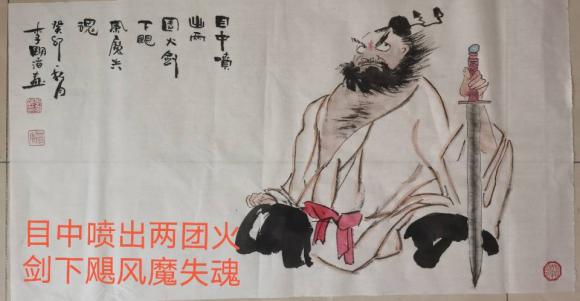 目中噴
出两
团火劍
下颶
風魔失
魂
癸卯秋月
李明 画
目中喷出两团火
剑下飓风魔失魂